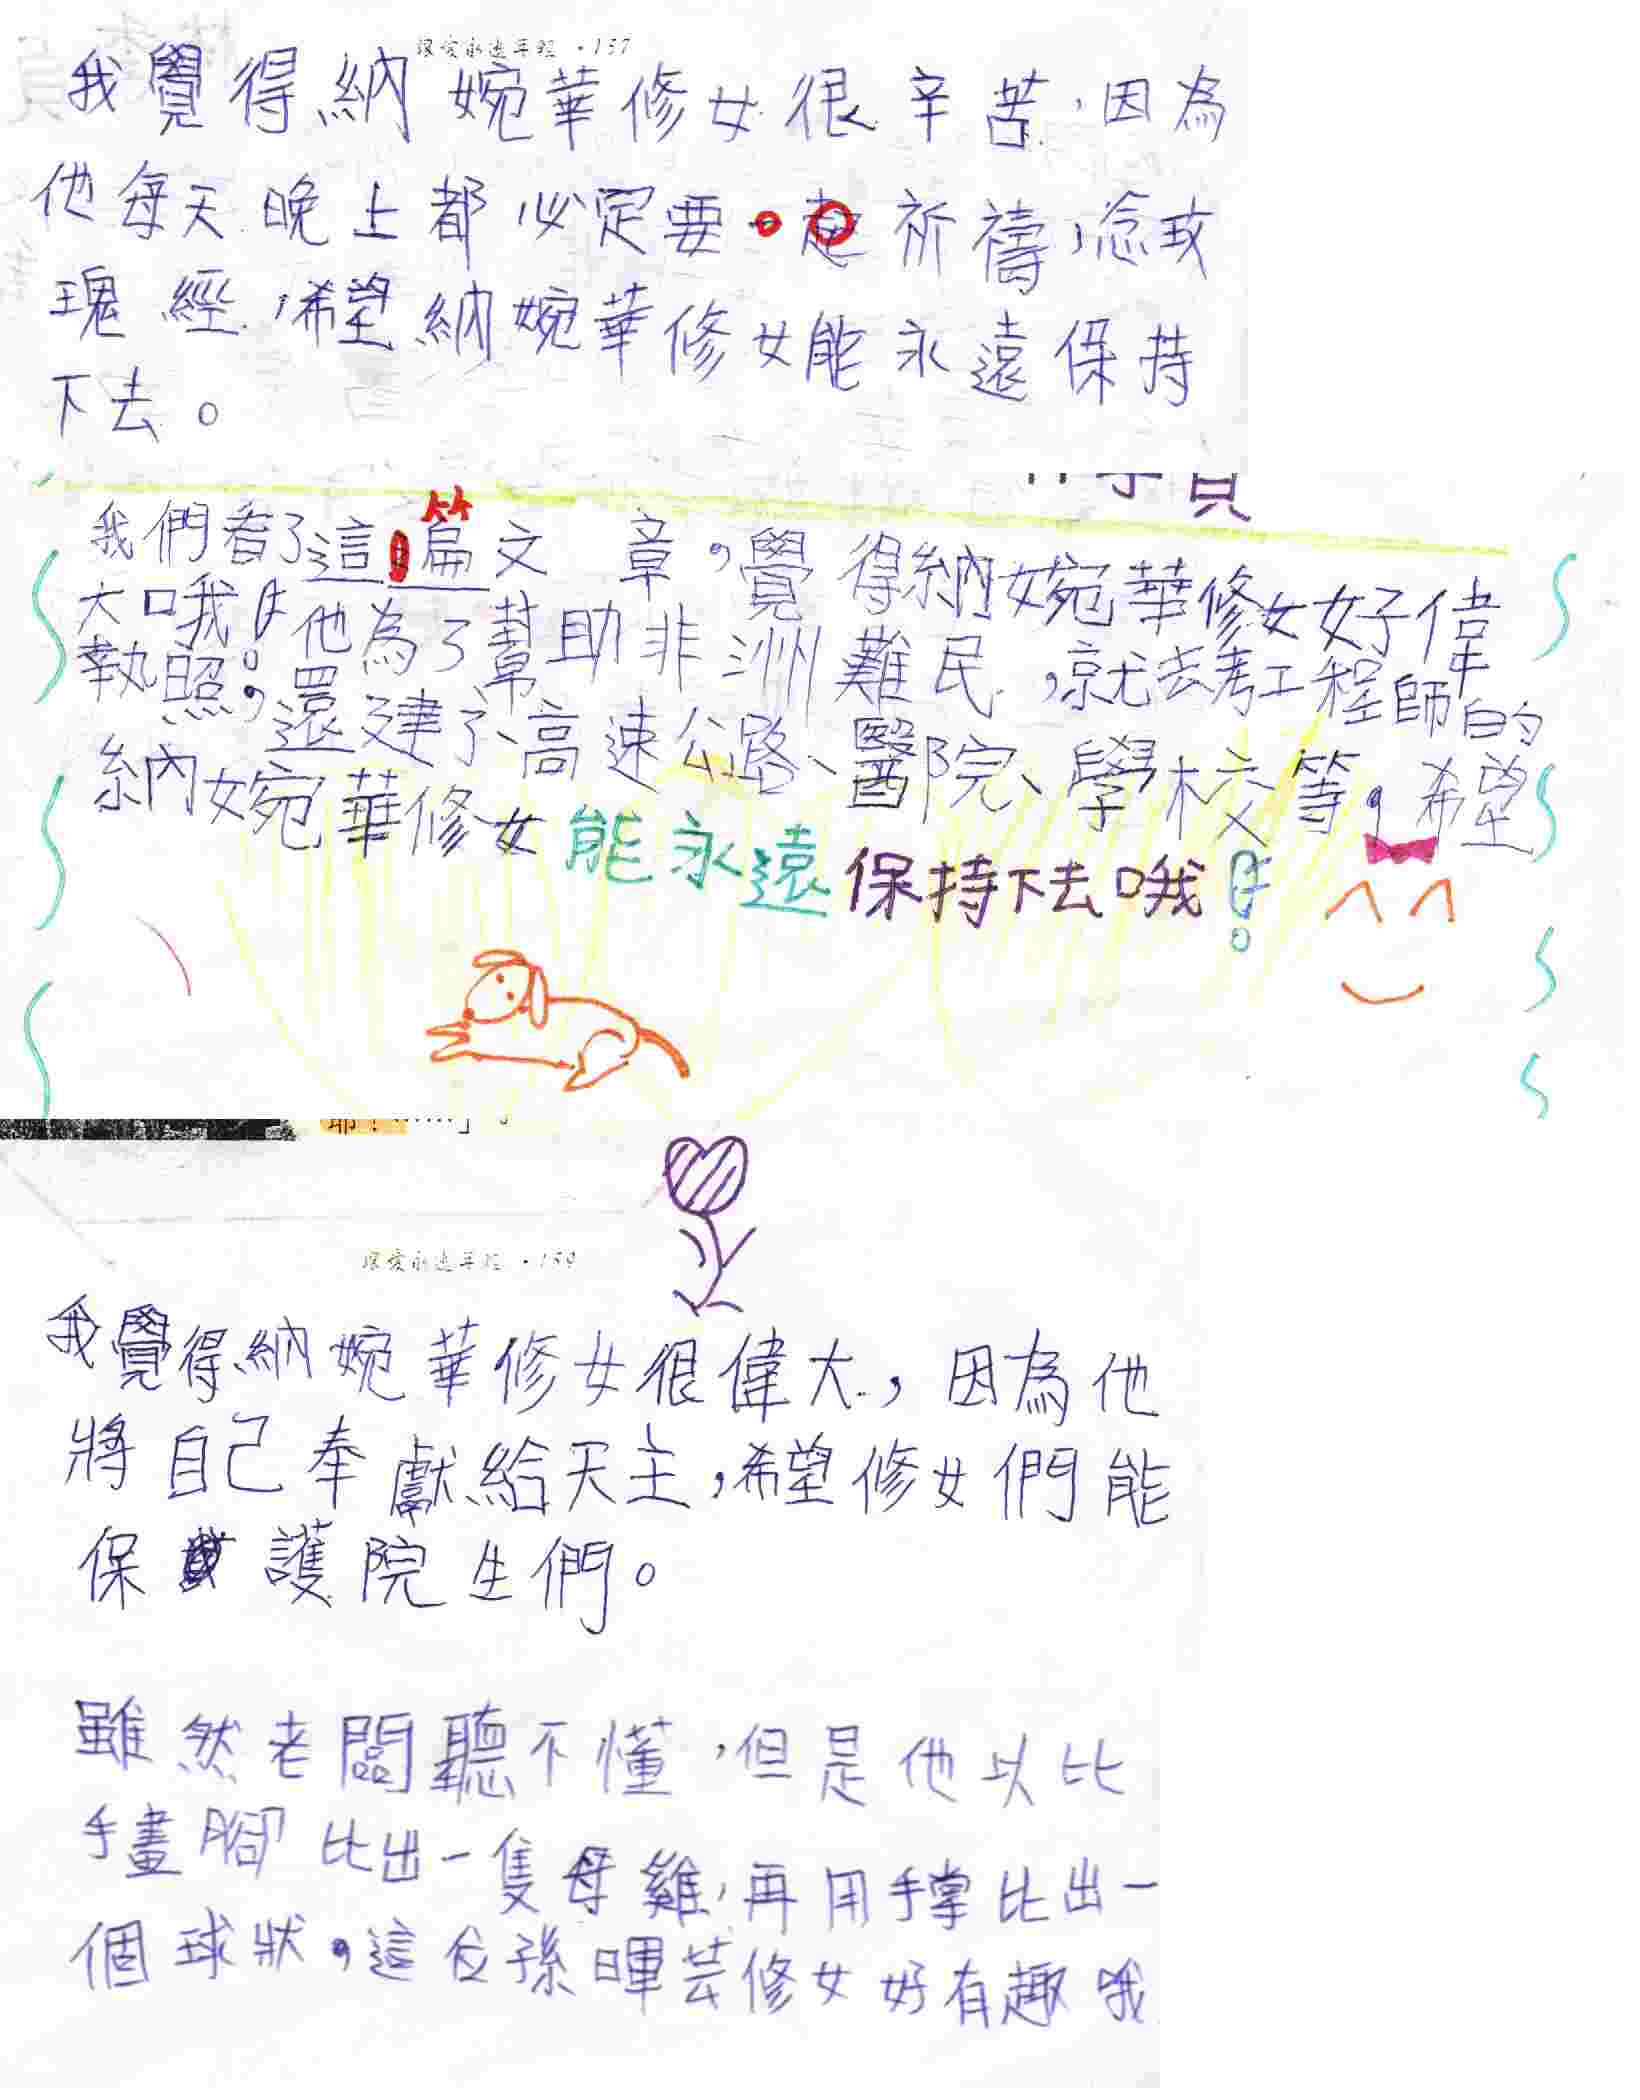 讓愛永遠年輕 ·157
我覺得納婉華修女很辛苦，因為
他每天晚上都必定要一起祈禱，念玫
瑰經，希望納婉華修女能永遠保持
下去。
我們看了這篇文章，覺得納婉華修女好偉
大哦！他為了幫助非洲難民，就去考工程師的
執照，還建了高速公路、醫院、學校等，希望
納婉華修女能永遠保持下去哦！
耶！……」。
讓愛永遠年輕 ·159
我覺得納婉華修女很偉大，因為他
將自己奉獻給天主，希望修女們能
保護院生們。
雖然老闆聽不懂，但是他以比
手畫腳比出一隻母雞，再用手掌比出一
個球狀，這位孫暉芸修女好有趣哦